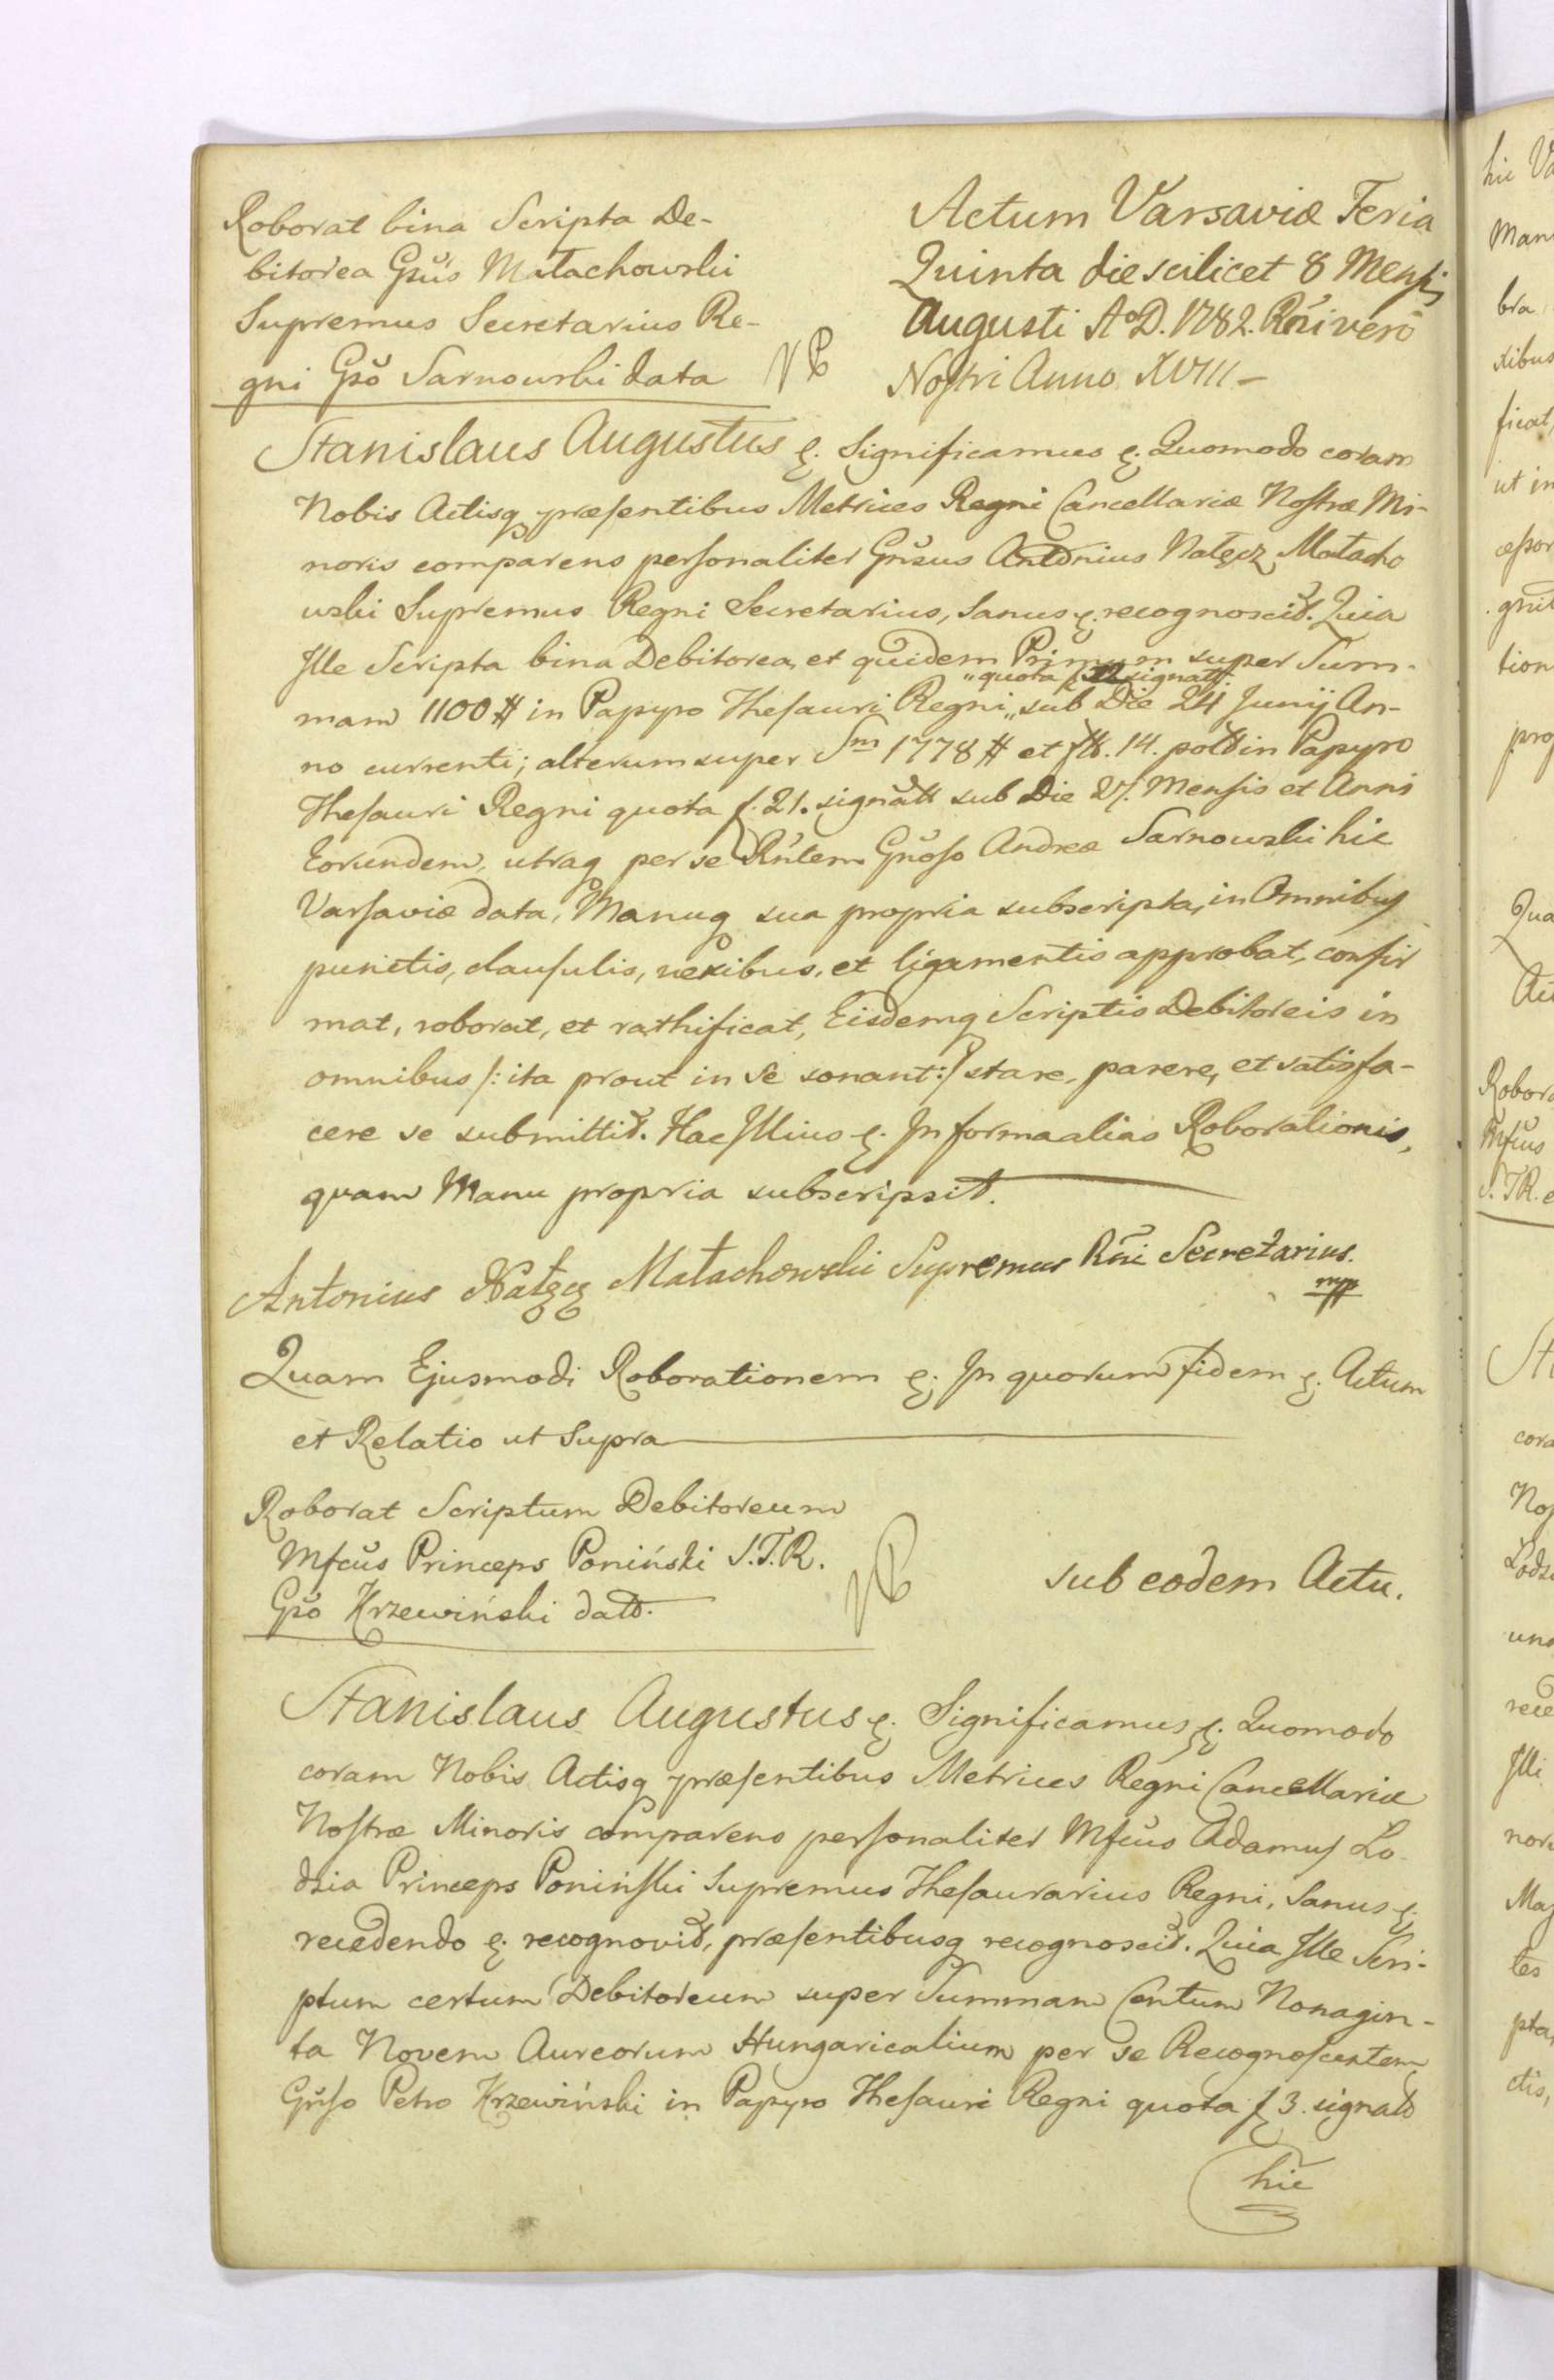 Roborat bina Scripta De-
bitorea Gsus Małachowski
Supremus Secretarius Re-
gni Gso Sarnowski data
Actum Varsaviæ Feria
Quinta die scilicet 8 Mensis
Augusti A°D. 1782. Rni vero
Nostri Anno XVIII
Stanislaus Augustus &. Significamus &. Quomodo coram
Nobis Actisq præsentibus Metrices Regni Cancellariæ Nostræ Mi-
noris comparens personaliter Gnsus Antonius Nałęcz Małacho
wski Supremus Regni Secretarius, Sanus &. recognoscit. Quia
Ille Scripta bina Debitorea, et quidem Primum super Sum-
"quota signatt:
mam 1100 # in Papyro Thesauri Regni "sub Die 24 Junij An-
no currenti; alterum super Sm 1778 # et ft. 14. poltt in Papyro
Thesauri Regni quota f. 21. signatt sub Die 27. Mensis et Anni
Eorundem, utraq per se Rntem Gnoso Andreæ Sarnowski hic
Varsaviæ data, Manuq sua propria subscripta, in Omnibus
punctis, clausulis, nexibus, et ligamentis approbat, confir
mat, roborat, et rathificat, Eisdemq Scriptis Debitoreis in
omnibus /: ita prout in Se sonant :/ stare, parere, et satisfa-
cere se submittit. Hac Illius &. In forma alias Roborationis,
quam Manu propria subscripsit.
Antonius Nałęcz Małachowski Supremus Rni Secretarius.
mpp
Quam Ejusmodi Roborationem &. In quorum fidem &. Actum
et Relatio ut Supra
Roborat Scriptum Debitoreum
Mfcus Princeps Poniński S.T.R.
Gso Krzewiński datt.
sub eodem Actu.
Stanislaus Augustus &. Significamus &. Quomodo
coram Nobis Actisq præsentibus Metrices Regni Cancellariæ
Nostræ Minoris comparens personaliter Mfcus Adamus Ło
dzia Princeps Poniński Supremus Thesaurarius Regni, Sanus &.
recedendo &. recognovit, præsentibusq recognoscit. Quia Ille Scri-
ptum certum Debitoreum super Summam Centum Nonagin-
ta Novem Aureorum Hungaricalium per se Recognoscentem
Gnso Petro Krzewiński in Papyro Thesauri Regni quota f 3. signatt
hic